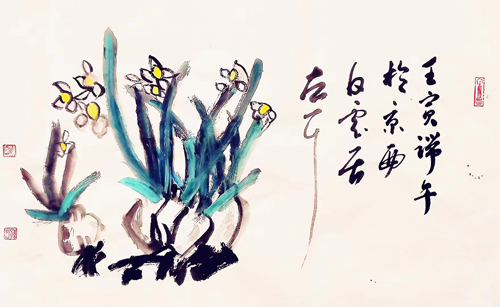 壬寅端午
於京西
白雲居